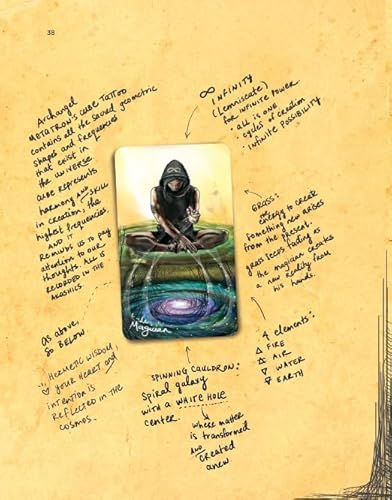 38
Archangel
METATRON'S CUBE TATTOO
contains all the sacred geometric
shapes and frequencies
that exist in
the UNIVERSE
CUBE represents
harmony AND SKILL
in creation, the
highest frequencies,
AND it
Reminds us to pay
attention to our
thoughts. ALL is
RECORDED IN THE
AKASHICS
∞ INFINITY
(Lemniscate)
for INFINITE POWER.
• ALL IS ONE
• cycles of creation
• Infinite possibility
GRASS:
energy to create
something new arises
from the present.
grass feeds
the magician creates
a new reality from
his hands.
the
Magician
As above,
So BELOW.
HERMETIC WISDOM,
your HEART and
intention is
Reflected in the
cosmos.
SPINNING CAULDRON:
Spiral galaxy
with a WHITE HOLE
center.
where matter
is transformed
AND created
anew
4 elements:
△ FIRE
AIR
▽ WATER
EARTH